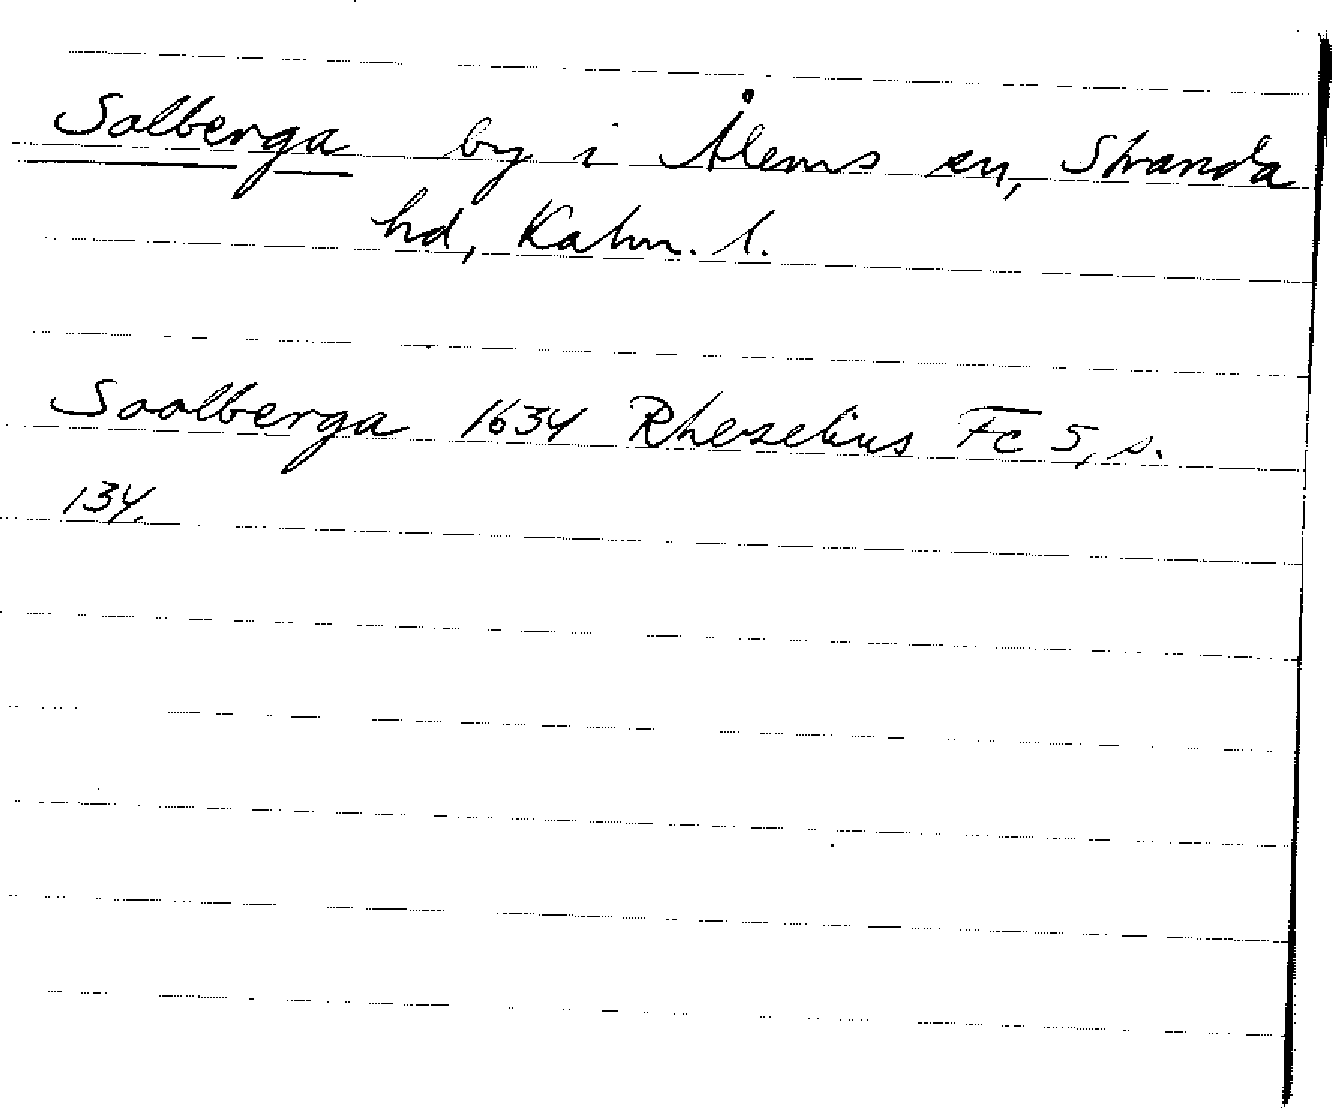 Solberga by i Ålems sn, Stranda
hd, Kalm. l.
Soolberga 1634 Rhezelius Fc 5, s.
134.